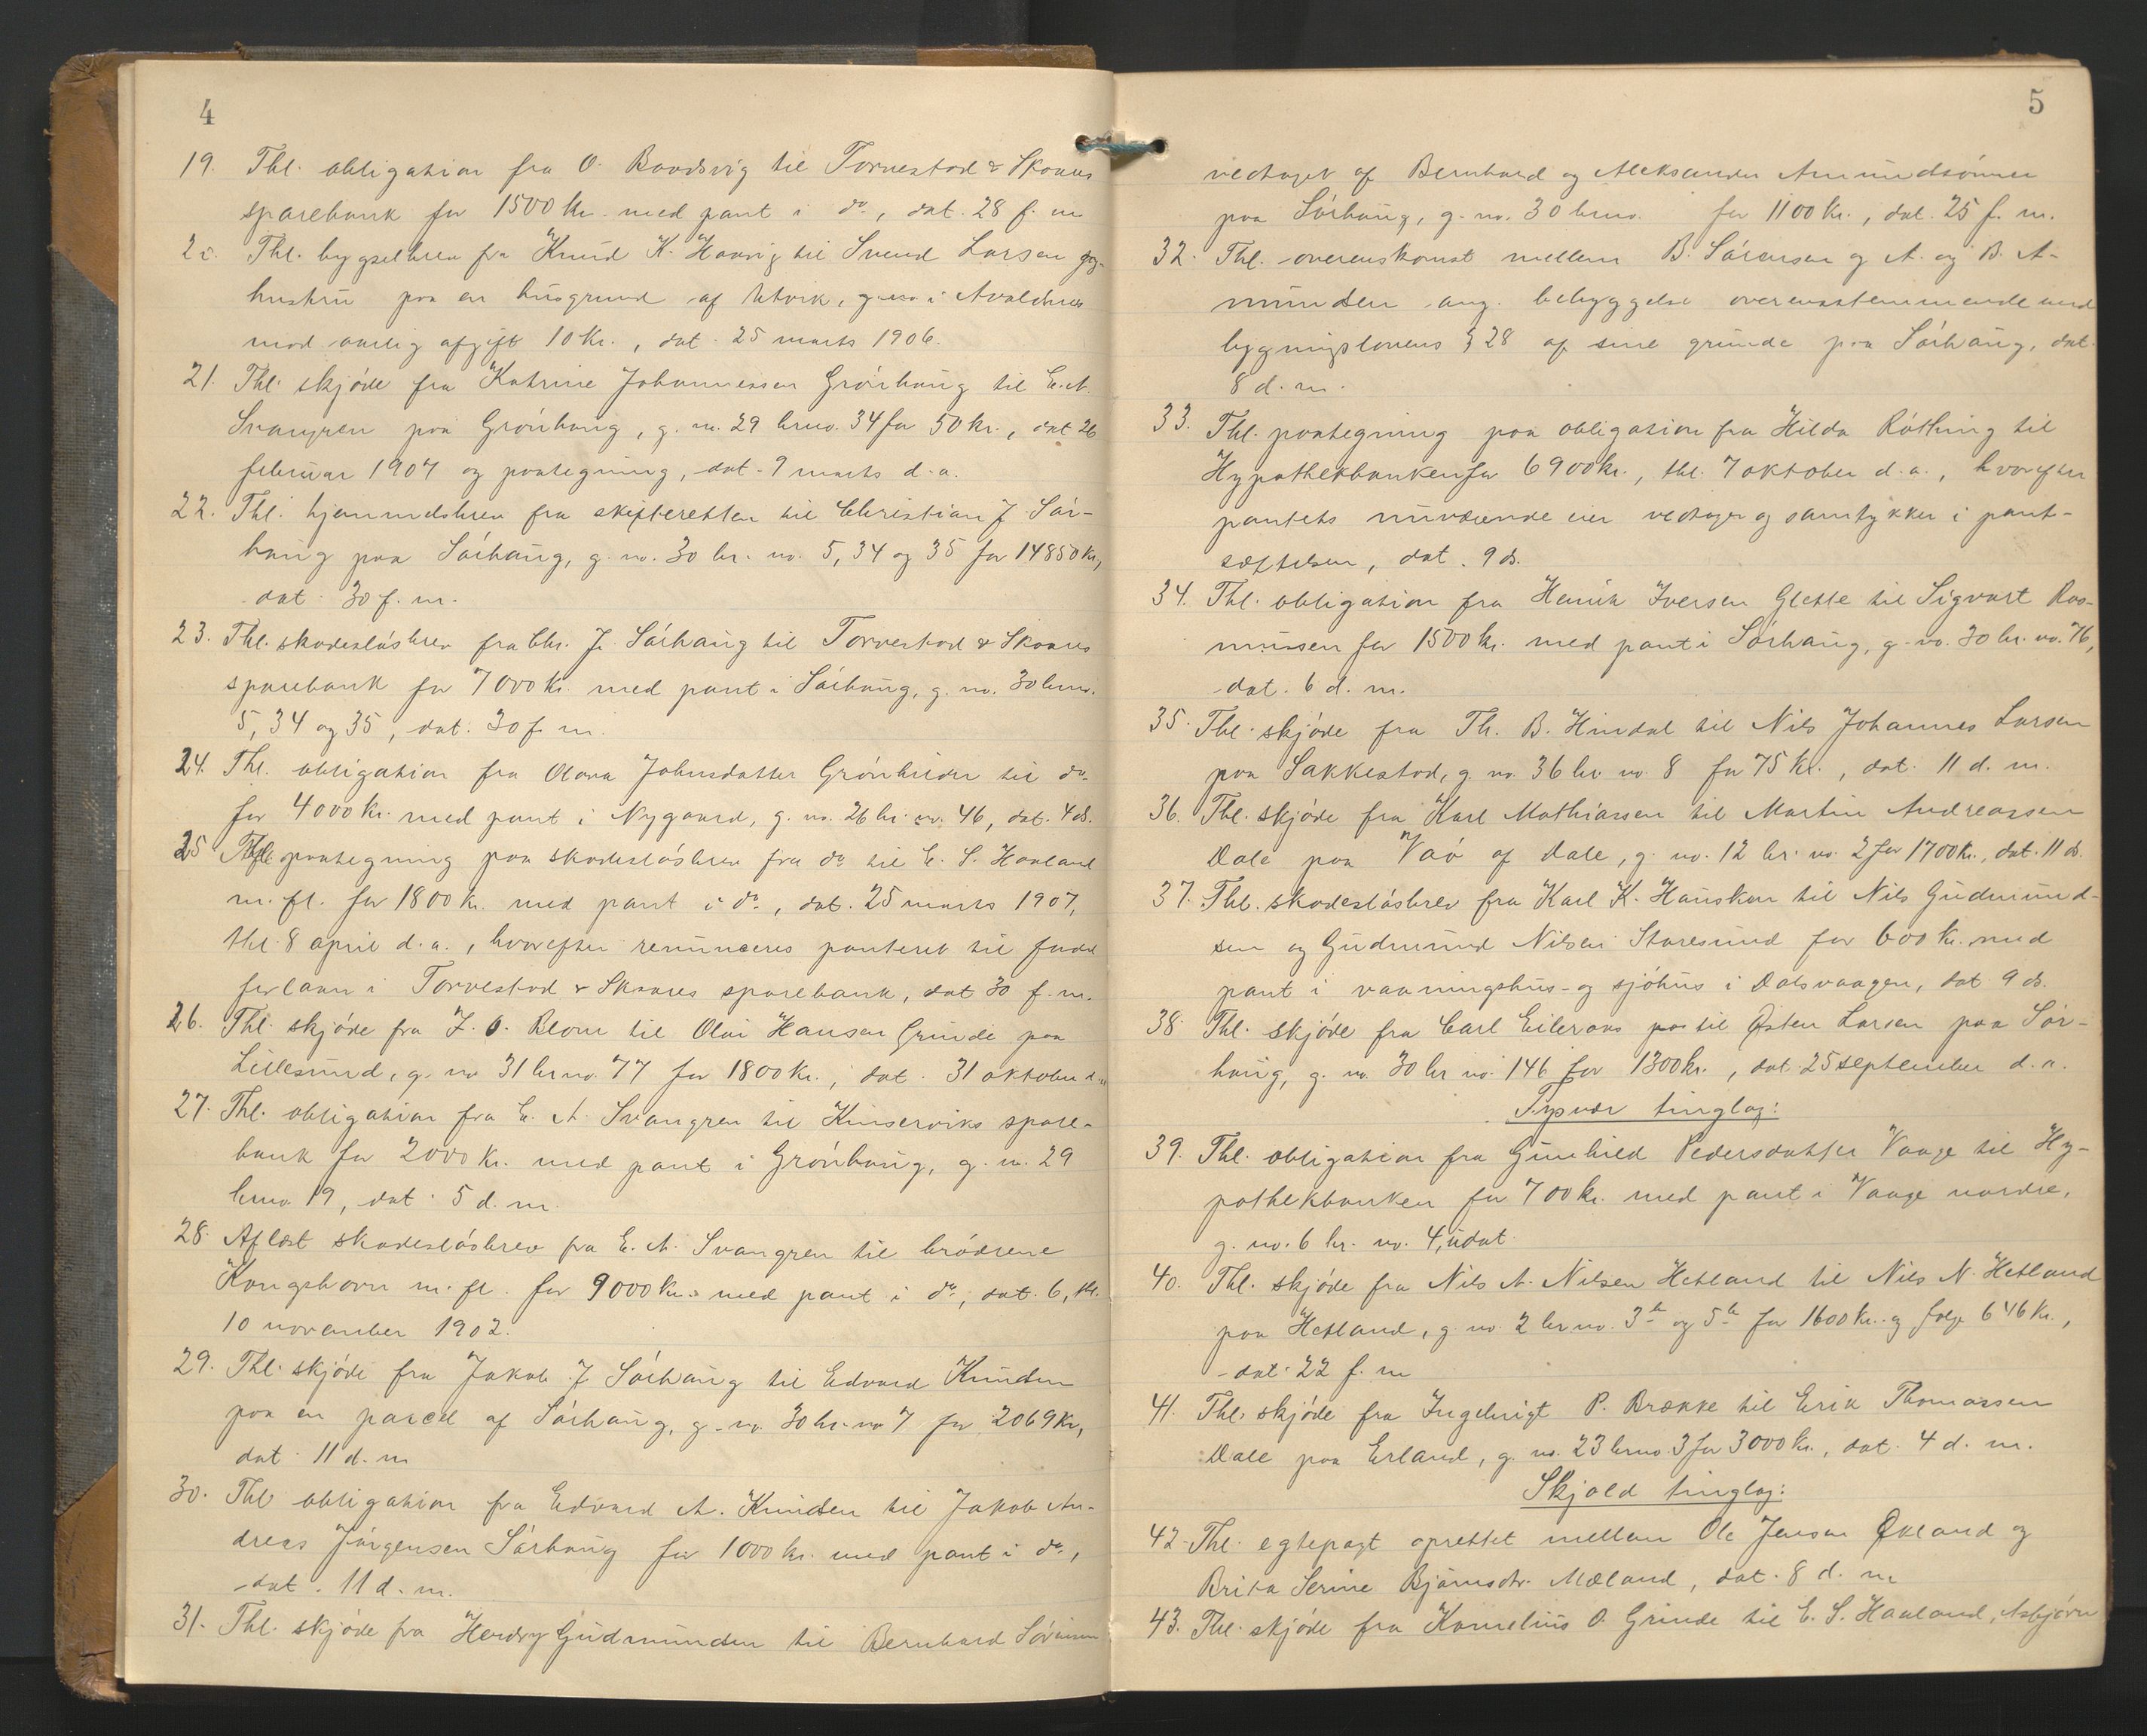 4
19. Thl. obligation fra O. Baadsvig til Torvestad & Skaares
sparebank for 1500 kr. med pant i do., dat. 28 f. m
20. Thl. bygselbrev fra Knud K. Haavig til Svend Larsen og
hustru paa en husgrund af Utvik, g. no i Avaldsnes
mod aarlig afgift 10 kr., dat. 25 marts 1906.
21. Thl. skjöde fra Katrine Johannessen Grönhaug til E. A.
Svangren paa Grönhaug, g. no. 29 brno. 34 for 50 kr., dat 26
februar 1907 og paategning, dat. 9 marts d. a.
22. Thl. hjemmelsbrev fra skifteretten til Christian J. Sör-
haug paa Sörhaug, g. no. 30 br. no. 5, 34 og 35 for 14850 kr,
dat. 30 f. m.
23. Thl. skadeslösbrev fra Chr. J. Sörhaug til Torvestad & Skaares
sparebank for 7000 kr. med pant i Sörhaug, g. no. 30 brno.
5, 34 og 35, dat. 30 f. m.
24. Thl. obligation fra Olava Johnsdatter Grönlider til do.
for 4000 kr. med pant i Nygaard, g. no. 26 br. no. 46, dat. 4 ds.
25 Thl. paategning paa skadeslösbrev fra do. til E. S. Haaland
m. fl. for 1800 kr. med pant i do., dat. 25 marts 1907,
thl. 8 april d. a., hvorefter renunceres panteret til fordel
for laan i Torvestad & Skaares sparebank, dat 30 f. m.
26. Thl. skjöde fra J. O. Blom til Olai Hansen Grinde paa
Lillesund, g. no 31 brno. 77 for 1800 kr., dat. 31 oktober d. a
27. Thl. obligation fra E. A. Svangren til Kinserviks spare-
bank for 2000 kr. med pant i Grönhaug, g. no. 29
brno 19, dat. 5 d. m.
28. Aflæst skadeslösbrev fra E. A. Svangren til brödrene
Kongshavn m. fl. for 9000 kr. med pant i do., dat. 6, thl.
10 november 1902.
29. Thl. skjöde fra Jakob J. Sörhaug til Edvard Knudsen
paa en parcel af Sörhaug, g. no. 30 br. no 7 for 2069 kr,
dat. 11 d. m
30. Thl. obligation fra Edvard A. Knudsen til Jakob An-
dreas Jörgensen Sörhaug for 1000 kr. med pant i do.,
dat. 11 d. m.
31. Thl. skjöde fra Gudmundsen til Bernhard Sörensen
5
vedtaget af Bernhard og Aleksander Amundsönner
paa Sörhaug, g. no. 30 brno. for 1100 kr., dat. 25 f. m.
32. Thl. overenskomst mellem B. Sörensen og A. og B. A-
mundsen ang. bebyggelse overensstemmende med
bygningslovens § 28 af sine grunde paa Sörhaug, dat.
8 d. m.
33. Thl. paategning paa obligation fra Hilda Röthing til
Hypothekbanken for 6900 kr., thl. 7 oktober d. a., hvorefter
pantets nuværende eier vedtager og samtykker i pant-
sættelsen, dat. 9 ds.
34. Thl. obligation fra Henrik Iversen Glette til Sigvart Ras-
mussen for 1500 kr. med pant i Sörhaug, g. no. 30 br. no. 76,
dat. 6 d. m.
35. Thl. skjöde fra Th. B. Hindal til Nils Johannes Larsen
paa Sakkestad, g. no. 36 br no 8 for 75 kr., dat. 11 d. m.
36. Thl. skjöde fra Karl Mathiassen til Martin Andreassen
Dale paa Vaö af Dale, g. no. 12 br. no 2 for 1700 kr., dat. 11 ds.
37. Thl. skadeslösbrev fra Karl K. Hausken til Nils Gudmund-
sen og Gudmund Nilsen Staresund for 600 kr. med
pant i vaaningshus- og sjöhus i Dalsvaagen, dat 9 ds.
38. Thl. skjöde fra Carl Eileraas til Östen Larsen paa Sör-
haug, g. no. 30 br no. 146 for 1300 kr., dat. 25 september d. a.
Tysvær tinglag:
39. Thl. obligation fra Gunhild Pedersdatter Vaage til Hy-
pothekbanken for 700 kr. med pant i Vaage nordre,
g. no. 6 br. no. 4, udat.
40. Thl. skjöde fra Nils A. Nilsen Hetland til Nils N. Hetland
paa Hetland, g. no. 2 br no. 3 b og 5 b for 1600 kr. og folge 646 kr.,
dat. 22 f. m
41. Thl. skjöde fra Ingebrigt P. Brække til Erik Thomassen
Dale paa Erland, g. no. 23 brno. 3 for 3000 kr., dat. 4 d. m.
Skjold tinglag:
42. Thl. egtepagt oprettet mellem Ole Jensen Økland og
Brita Serine Bjömsdr. Mæland, dat. 8 d. m
43. Thl. skjöde fra Kornelius O. Grinde til E. S. Haaland, Asbjörn